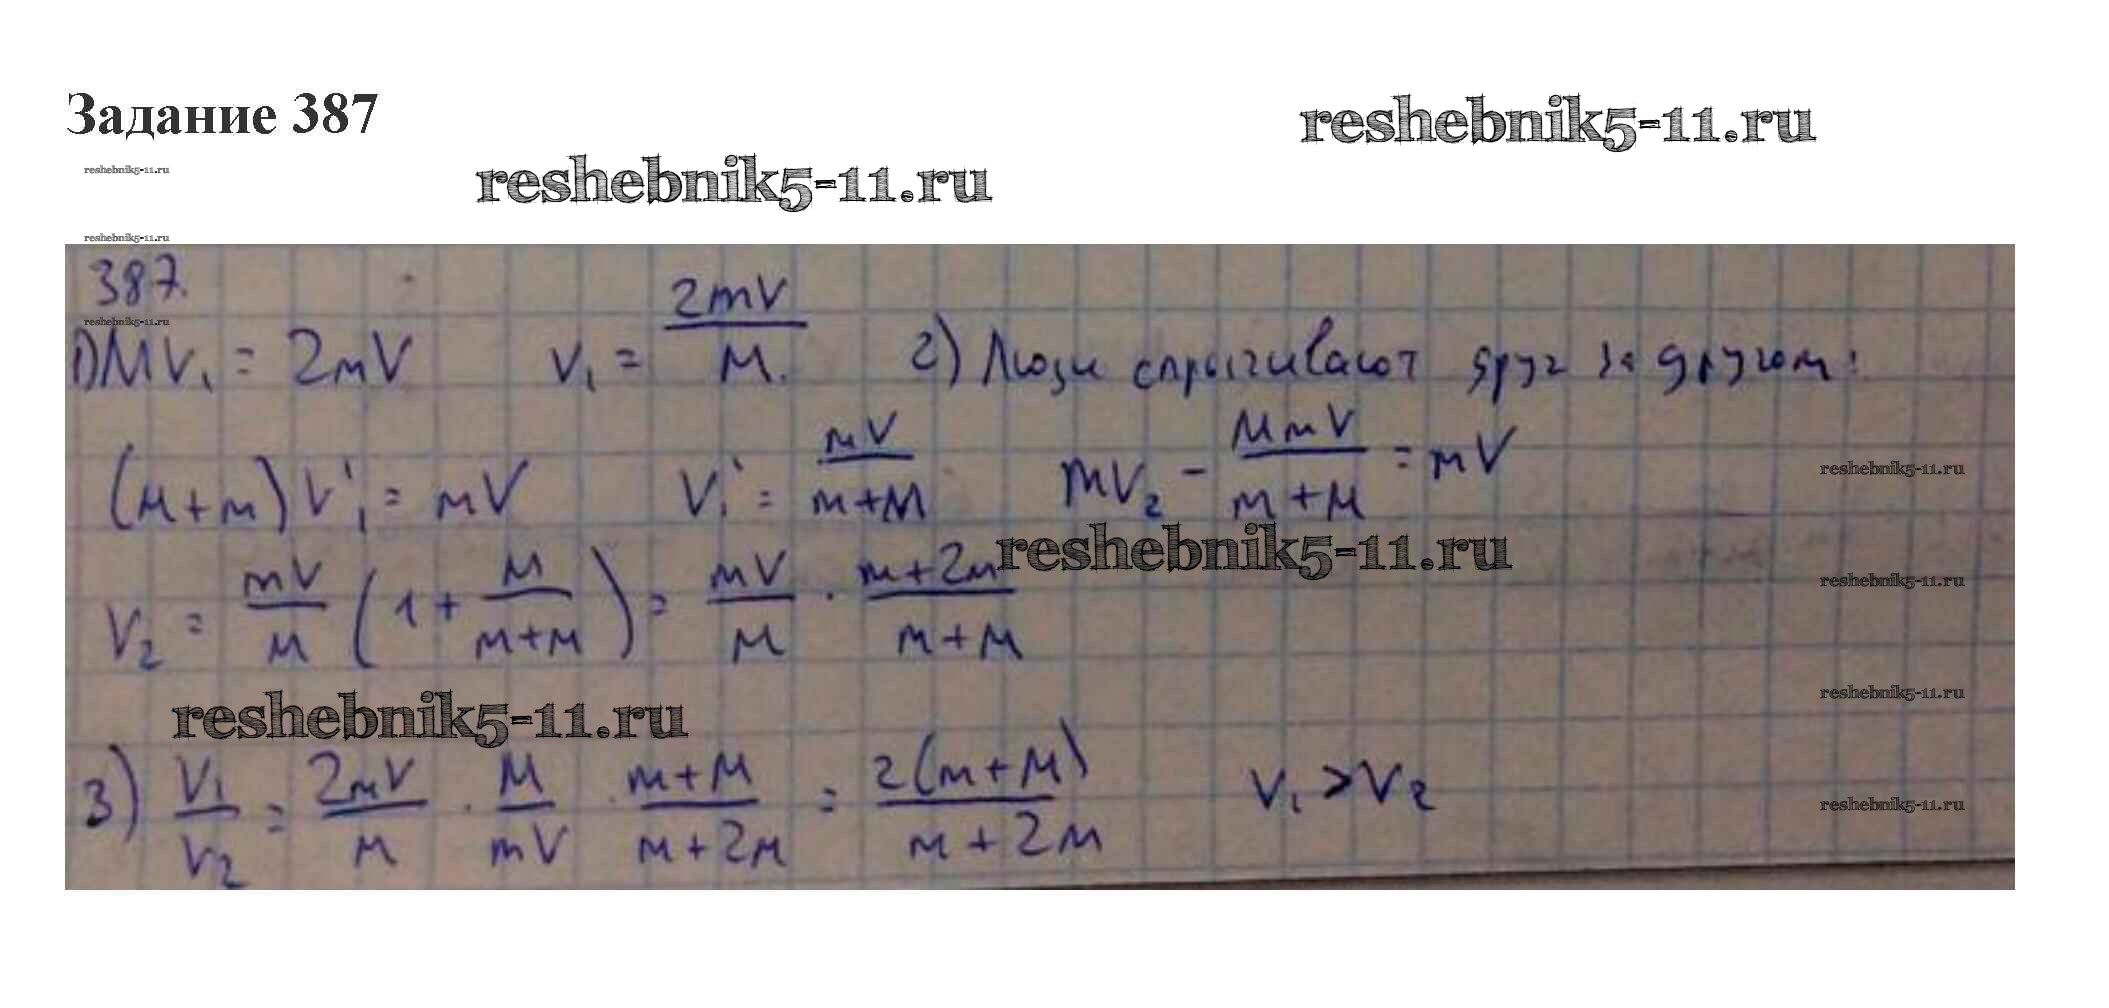 Задание 387
reshebnik5-11.ru
reshebnik5-11.ru
reshebnik5-11.ru
reshebnik5-11.ru
387.
reshebnik5-11.ru
1) MV₁ = 2mV   V₁ = 2mV/M.   2) Люди спрыгивают друг за другом:
(M+m)V'₁ = mV   V₁' = mV/(m+M)   mV₂ - MmV/(m+M) = mV
reshebnik5-11.ru
reshebnik5-11.ru
V₂ = mV/M (1 + M/(m+M)) = mV/M · (m+2M)/(m+M)
reshebnik5-11.ru
reshebnik5-11.ru
reshebnik5-11.ru
3) V₁/V₂ = 2mV/M · M/mV · (m+M)/(m+2M) = 2(m+M)/(m+2M)   V₁ > V₂
reshebnik5-11.ru